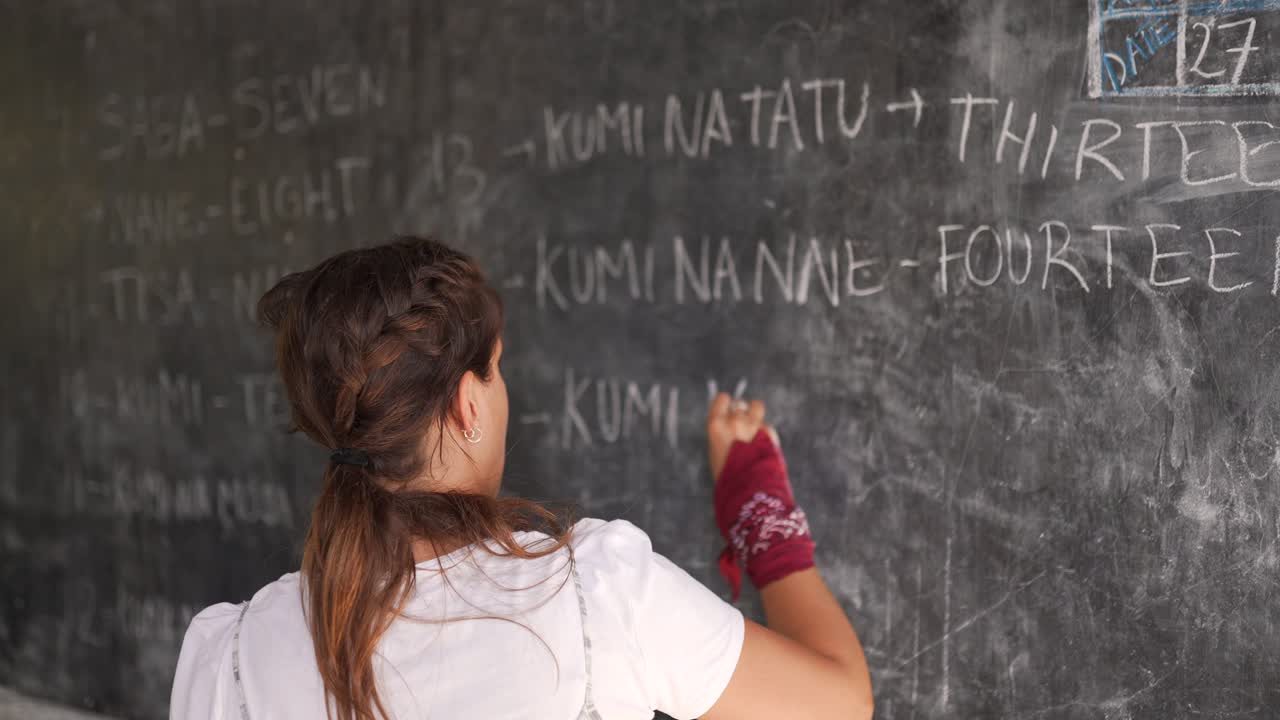 DATE 27
7 SABA-SEVEN
NANE-EIGHT
TISA-
KUMI-TE
KUMI NA MOJA
KUMI
13 → KUMI NA TATU → THIRTEE
- KUMI NA NNE - FOURTEEN
- KUMI